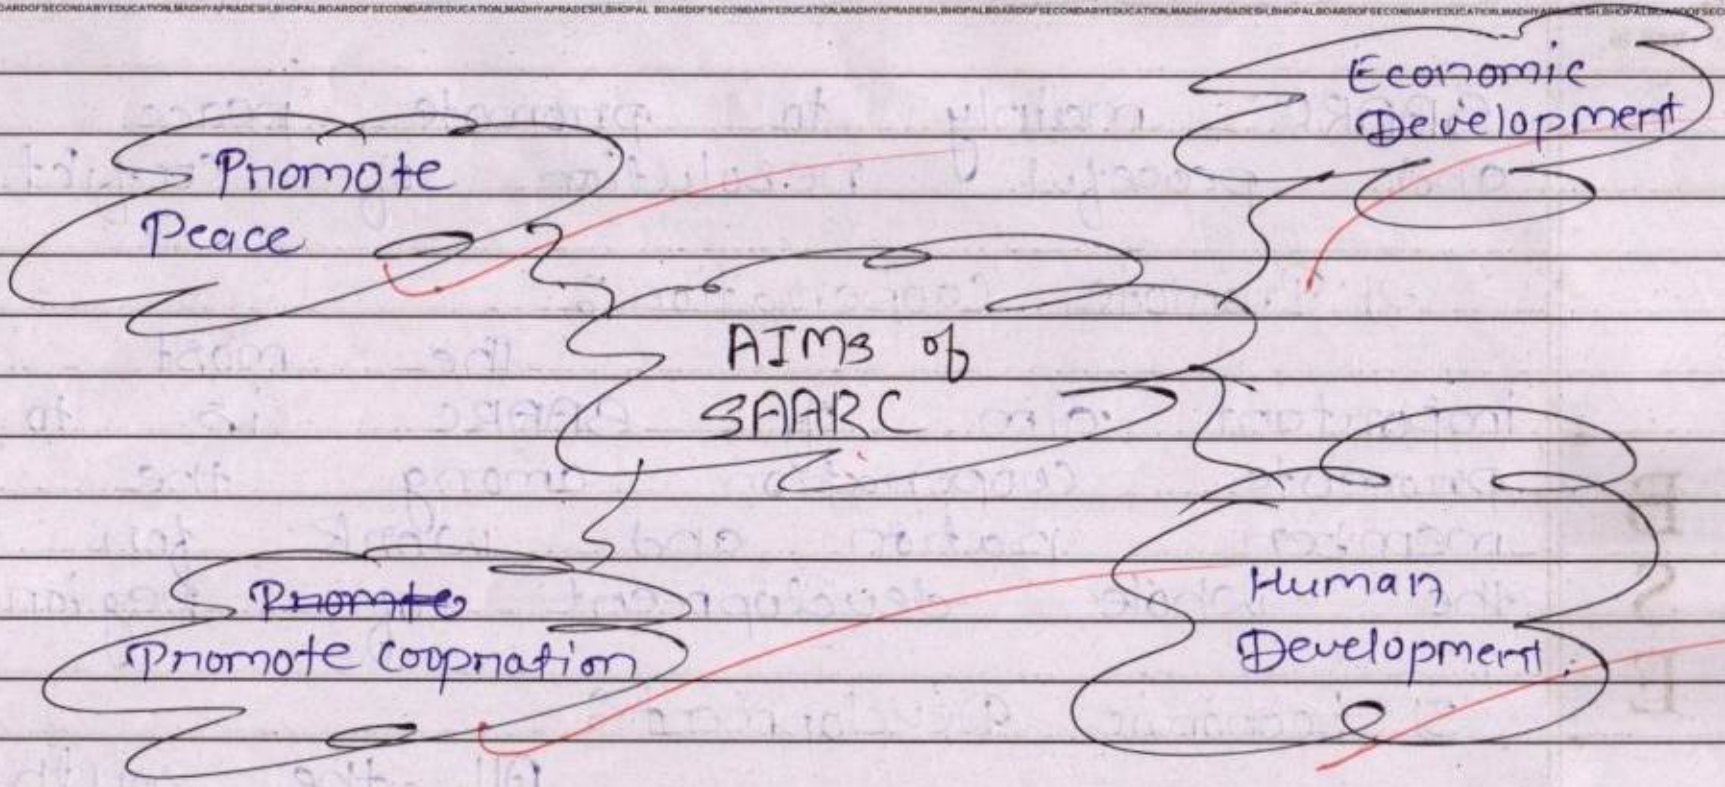 BOARDOFSECONDARYEDUCATION,MADHYAPRADESH,BHOPAL BOARDOFSECONDARYEDUCATION,MADHYAPRADESH,BHOPAL BOARDOFSECONDARYEDUCATION,MADHYAPRADESH,BHOPAL BOARDOFSECONDARYEDUCATION,MADHYAPRADESH,BHOPAL BOARDOFSECONDARYEDUCATION,MADHYAPRADESH,BHOPAL
Economic
Development
Promote
Peace
AIMs of
SAARC
Promote
Promote coopration
Human
Development.